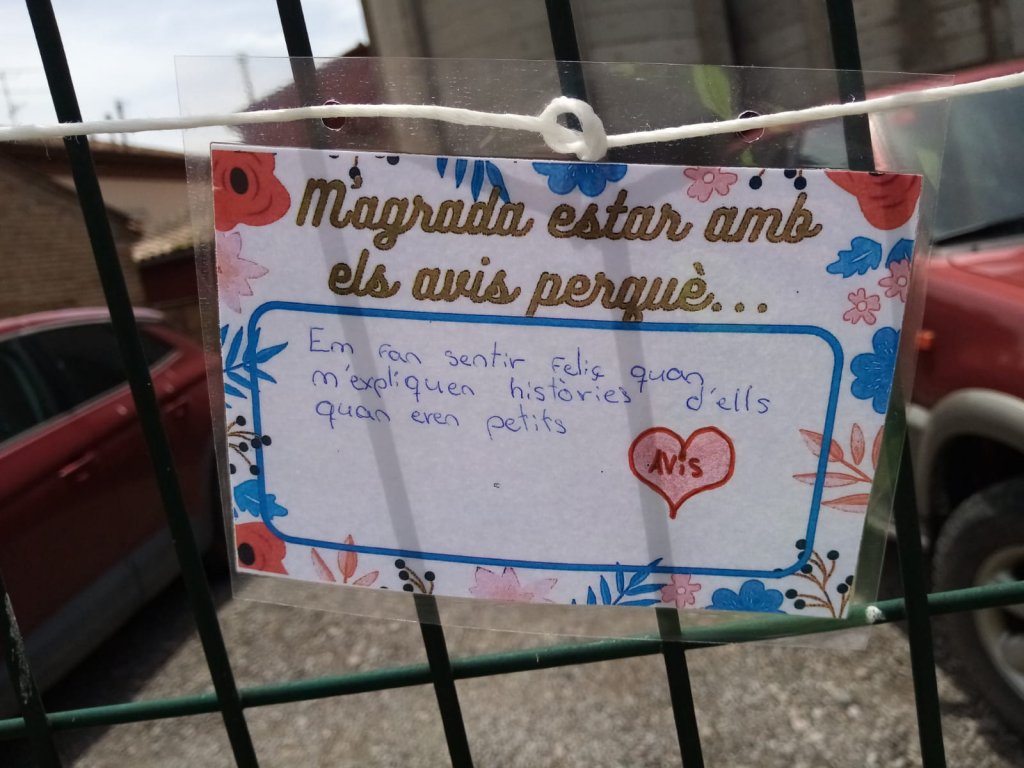 M'agrada estar amb
els avis perquè...
Em fan sentir Feliç quan
m'expliquen històries d'ells
quan eren petits
AVIS